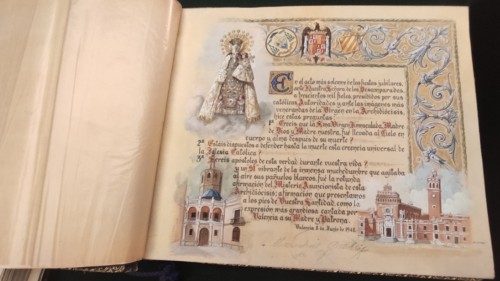 En el acto más solemne de las fiestas jubilares,
de Nuestra Señora de los Desamparados,
a trescientos mil fieles, presididos por sus
católicas Autoridades y ante las imágenes más
venerandas de la Virgen en la Archidiócesis,
hice estas preguntas:
1ª Creéis que la Sma. Virgen Inmaculada, Madre
de Dios y Madre nuestra, fué llevada al Cielo en
cuerpo y alma después de su muerte?
2ª Estáis dispuestos a defender hasta la muerte esta creencia universal de
la Iglesia Católica?
3ª Seréis apóstoles de esta verdad durante vuestra vida?
y un Sí vibrante de la inmensa muchedumbre que agitaba
al aire sus pañuelos blancos, fué la rotunda
afirmación del Misterio Asuncionista de esta
Archidiócesis; afirmación que presentamos
a los pies de Vuestra Santidad como la
expresión más grandiosa cantada por
Valencia a su Madre y Patrona.
Valencia 8 de Junio de 1948.